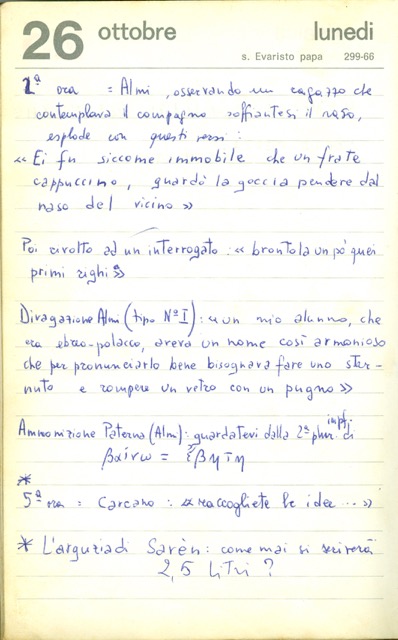 26 ottobre lunedi
s. Evaristo papa 299-66
1ª ora = Almi, osservando un ragazzo che
contemplava il compagno soffiantesi il naso,
esplode con questi versi:
« Ei fu siccome immobile che un frate
cappuccino, guardò la goccia pendere dal
naso del vicino »
Poi rivolto ad un interrogato: « brontola un pò quei
primi righi »
Divagazione Almi (tipo Nº I): « un mio alunno, che
era ebreo-polacco, aveva un nome così armonioso
che per pronunciarlo bene bisognava fare uno ster-
nuto e rompere un vetro con un pugno »
Ammonizione Paterna (Almi): guardatevi dalla 2ª plur. impf. di
βαίνω =
*
5ª ora = Carcano: « raccogliete le idee ... »
* L'arguzia di Sarèn: come mai si scriverà
2,5 litri?